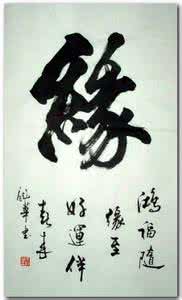 緣
鴻福隨
緣至
好運伴
華书